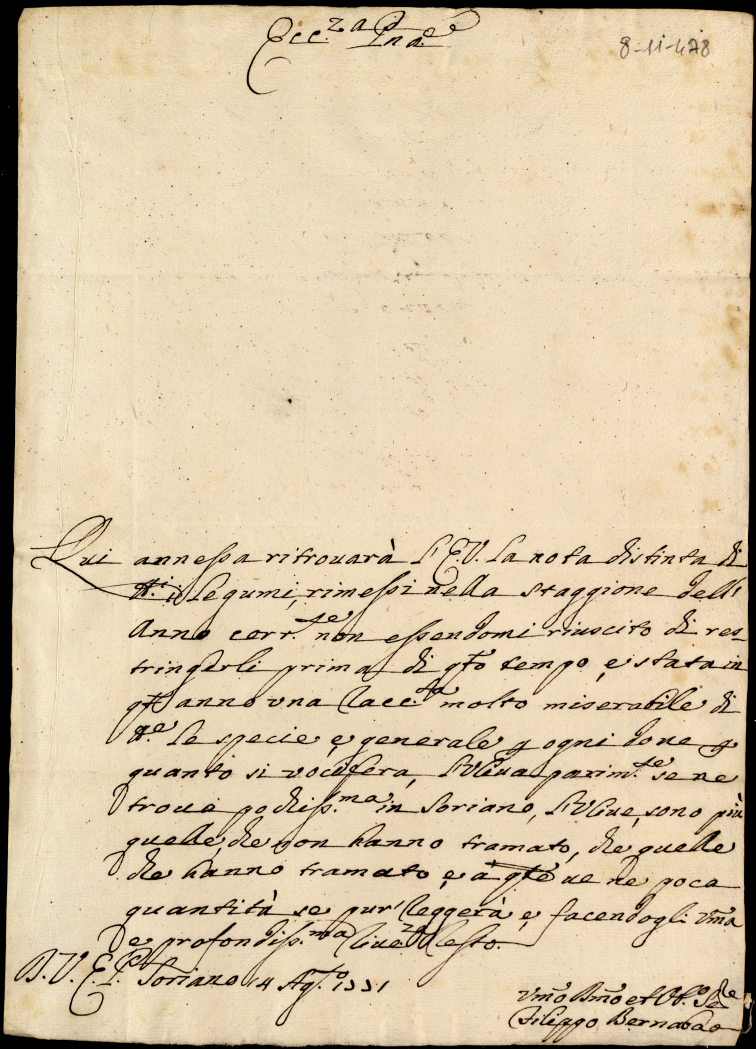 Ecc.za P.rone
8-11-478
Qui annessa ritrouarà l'E.V. la nota distinta di
tt.i i legumi, rimessi nella staggione dell'
Anno corr.te non essendomi riuscito di res-
tringerli prima di qto tempo, e stata in
qto anno una racc.ta molto miserabile di
tt.e le specie, e generale p ogni doue p
quanto si vocifera, l'Vliua parim.te se ne
troua pochiss.ma in Soriano, l'Vliue, sono più
quelle, che non hanno tramato, che quelle
che hanno tramato, e à qte ue ne poca
quantità se pur' leggerà, e facendogli vma
e profondiss.ma riue.za resto.
D.V.E. Soriano 14 Ag.to 1731
Vmo Dmo et Obo Se.re
Filippo Bernabao